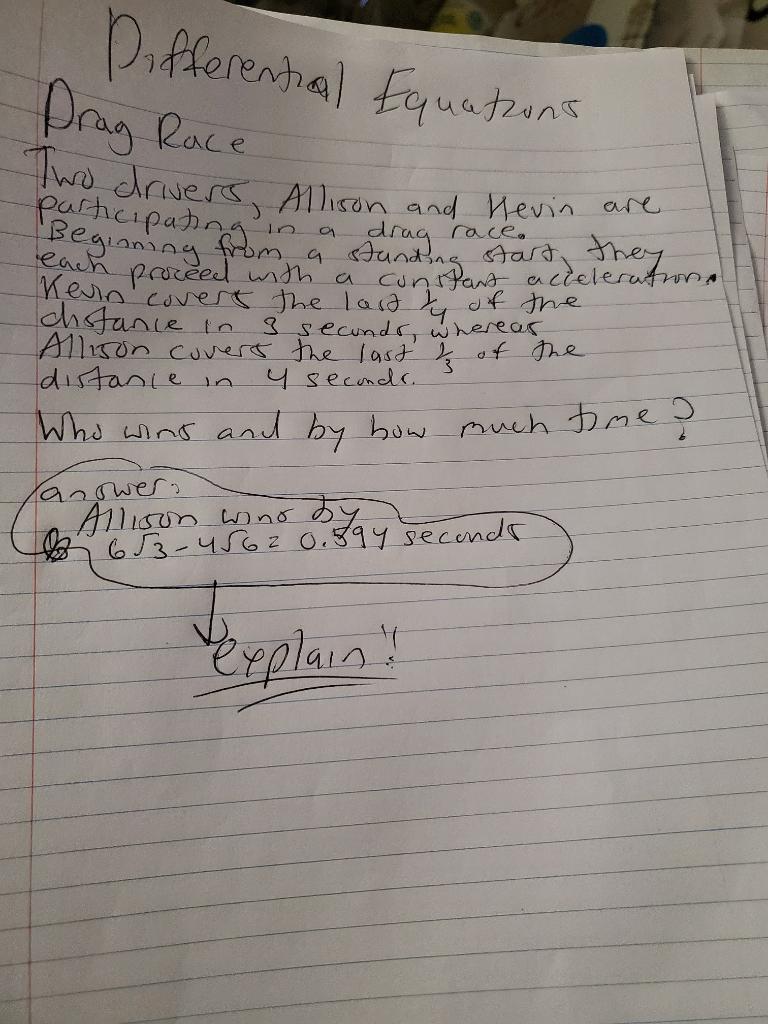 Differential Equations
Drag Race
Two drivers, Allison and Kevin are
participating in a drag race.
Beginning from a standing start, they
each proceed with a constant acceleration.
Kevin covers the last 1/4 of the
distance in 3 seconds, whereas
Allison covers the last 1/3 of the
distance in 4 seconds.
Who wins and by how much time?
answer:
Allison wins by
6√3-4√6= 0.594 seconds
explain!